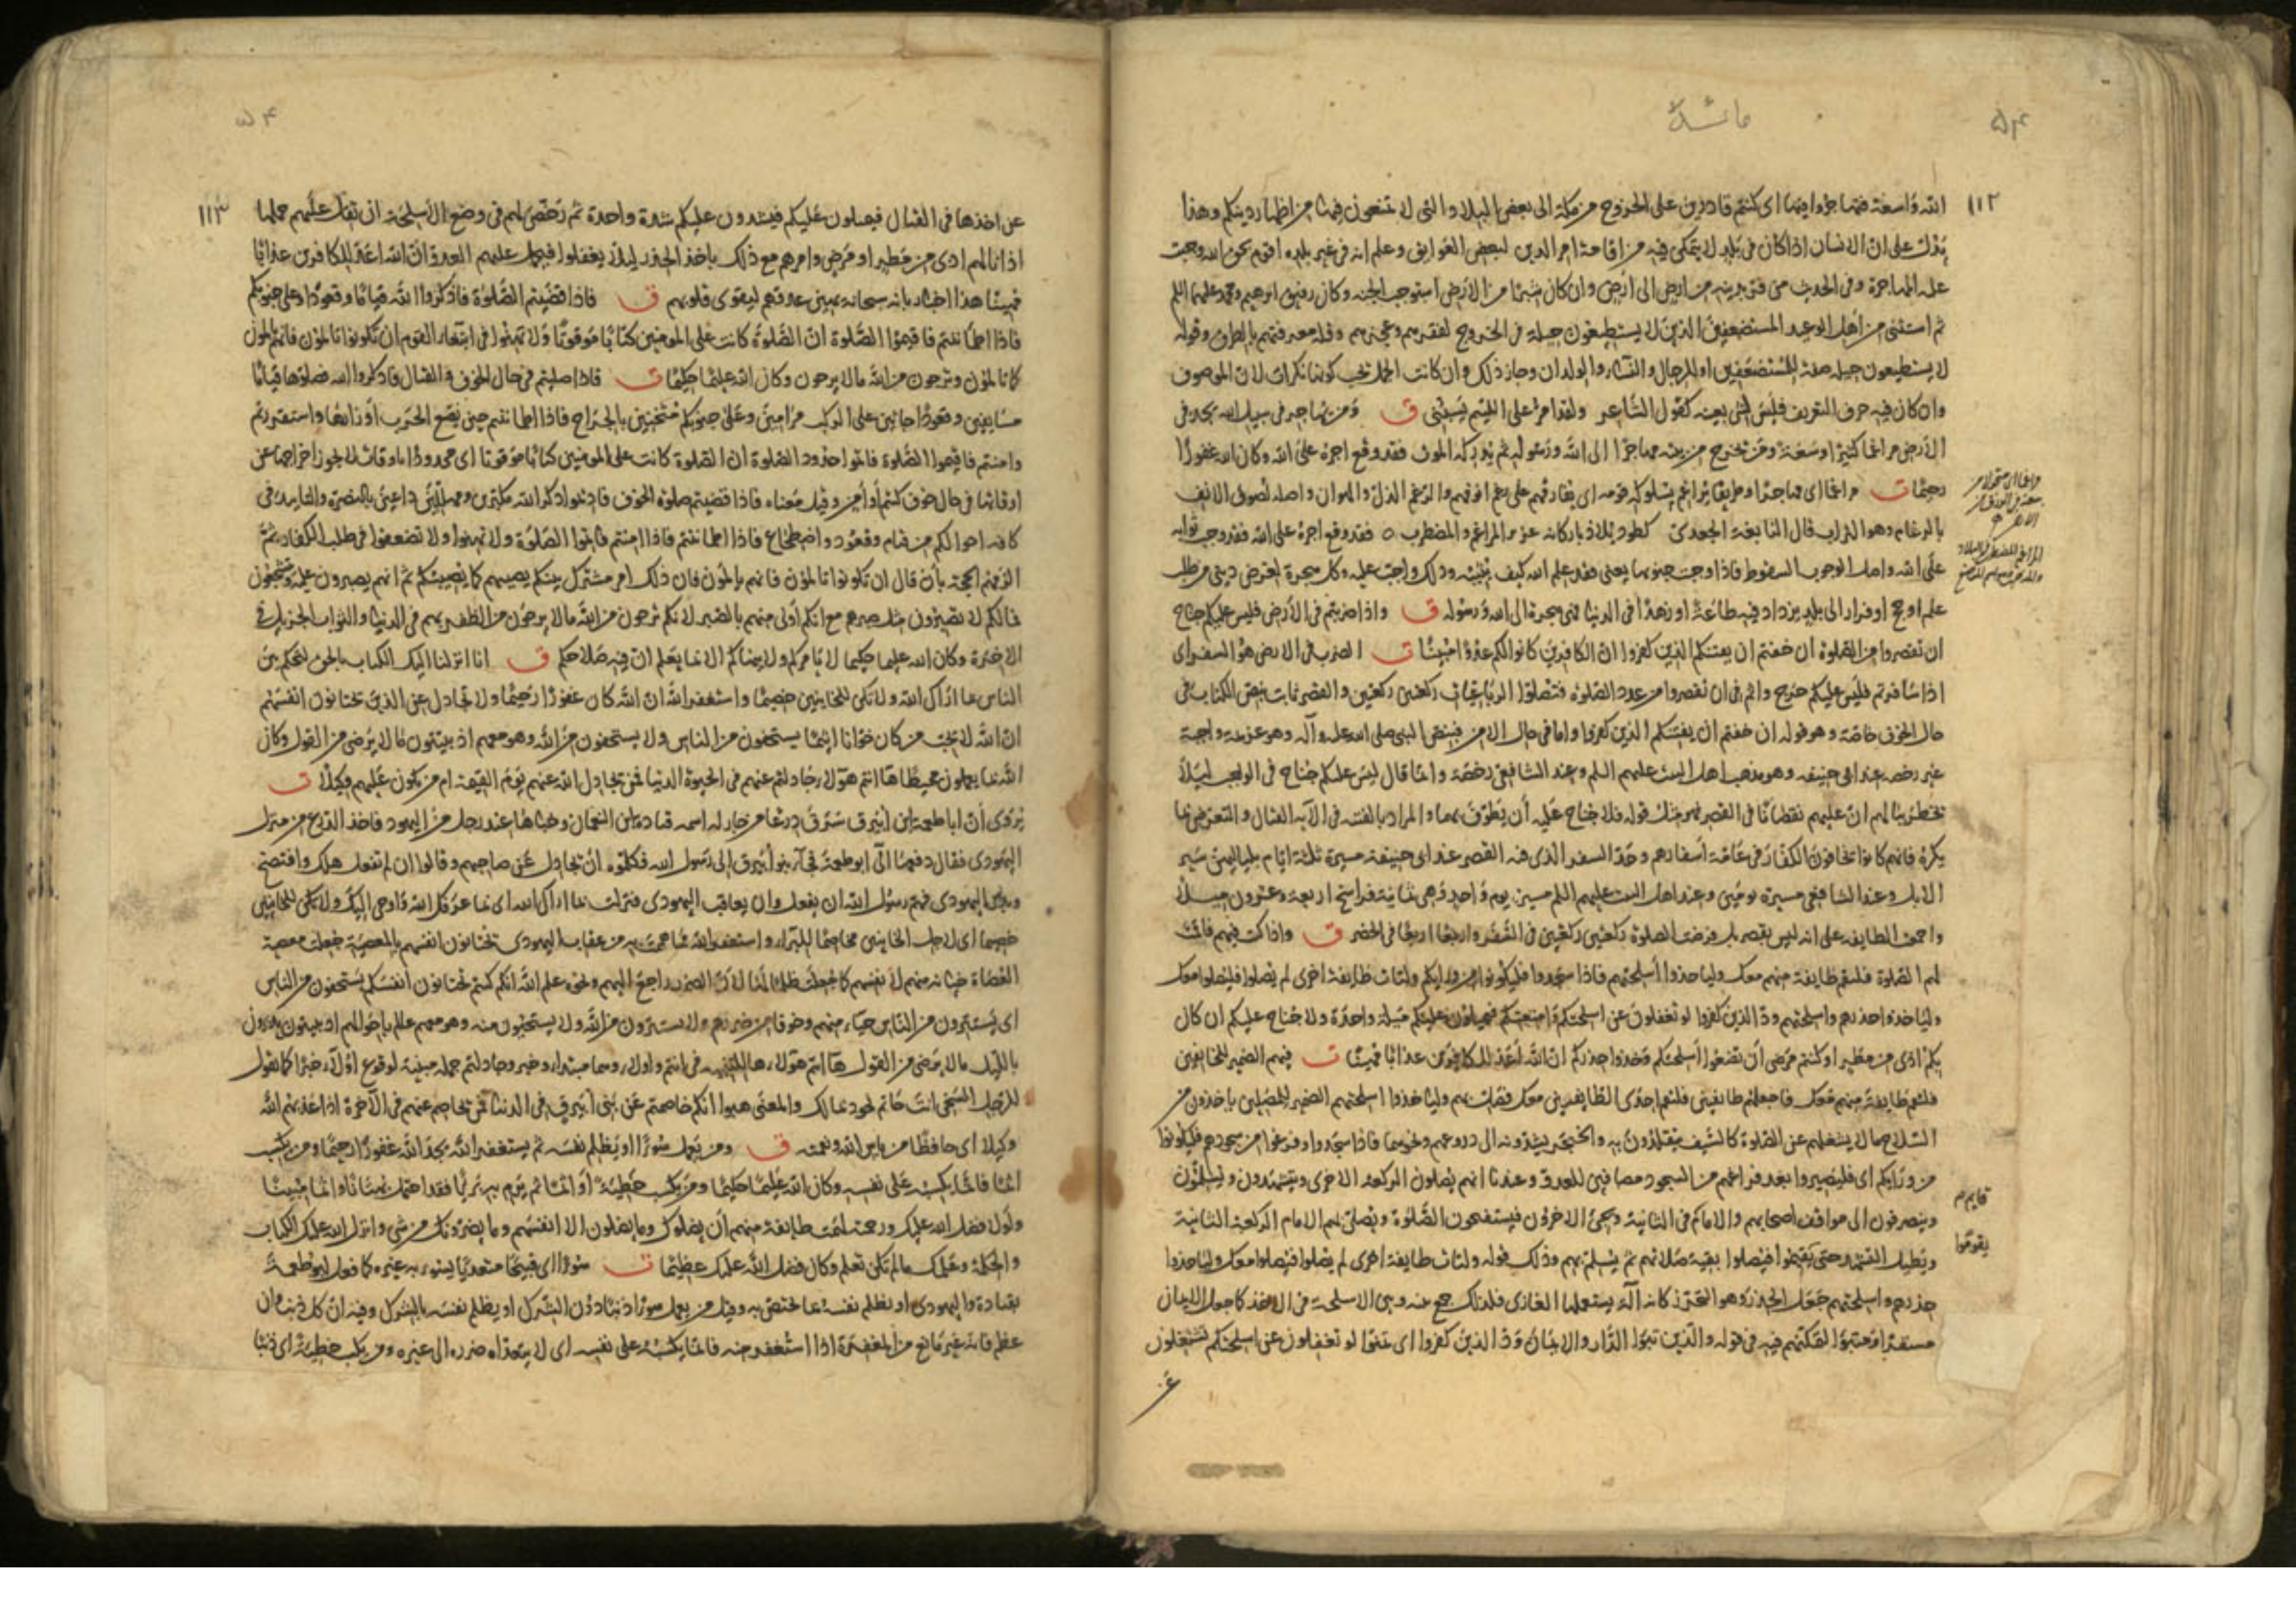 مائدة
۵۴
۱۱۲
الله واسعة فتهاجروا فيها اى كنتم قادرين على الخروج من مكة الى بعض البلاد والتى لا تمنعون فيها من اظهار دينكم وهذا
يدل على ان الانسان اذا كان فى بلد لا يتمكن فيه من اقامة امر الدين لبعض العوايق وعلم انه فى غير بلده اقوم بحق الله وجبت
عليه المهاجرة وفى الحديث من فر بدينه من ارض الى ارض وان كان شبرا من الارض استوجب الجنة وكان رفيق ابرهيم ومحمد عليهما السلم
ثم استثنى من اهل الوعيد المستضعفين الذين لا يستطيعون حيلة فى الخروج لفقرهم وعجزهم وقلة معرفتهم بالطرق وقوله
لا يستطيعون حيلة صفة للمستضعفين او للرجال والنساء والولدان وجاز ذلك وان كانت الجمل يجب كونها نكرات لان الموصوف
وان كان فيه حرف التعريف فليس لشى بعينه كقول الشاعر ولقد امر على اللئيم يسبنى ق ومن يهاجر فى سبيل الله يجد فى
الارض مراغما كثيرا وسعة ومن يخرج من بيته مهاجرا الى الله ورسوله ثم يدركه الموت فقد وقع اجره على الله وكان الله غفورا
رحيما ت مراغما اى مهاجرا او طريقا يراغم بسلوكه قومه اى يفارقهم على رغم انوفهم والرغم الذل والهوان واصله لصوق الانف
بالرغام وهو التراب قال النابغة الجعدى كطود يلاذ باركانه عزيز المراغم والمضطرب ه فقد وقع اجره على الله فقد وجب ثوابه
على الله واصل الوجوب السقوط فاذا وجبت جنوبها يعنى فقد علم الله كيف يثيبه وذلك واجب عليه وكل هجرة لغرض دينى من طلب
علم او حج او فرار الى بلد يزداد فيه طاعة او زهدا فى الدنيا فهى هجرة الى الله ورسوله ق واذا ضربتم فى الارض فليس عليكم جناح
ان تقصروا من الصلوة ان خفتم ان يفتنكم الذين كفروا ان الكافرين كانوا لكم عدوا مبينا ت الضرب فى الارض هو السفر اى
اذا سافرتم فليس عليكم حرج واثم فى ان تقصروا من عدد الصلوة فتصلوا الرباعيات ركعتين ركعتين والقصر ثابت بنص الكتاب فى
حال الخوف خاصة وهو قوله ان خفتم ان يفتنكم الذين كفروا واما فى حال الامن فبنص النبى صلى الله عليه وآله وهو عزيمة واجبة
غير رخصة عند ابى حنيفة وهو مذهب اهل البيت عليهم السلم وعند الشافعى رخصة وانما قال ليس عليكم جناح فى الواجب ليلا
يخطر ببالهم ان عليهم نقصانا فى القصر فهو مثل قوله فلا جناح عليه ان يطوف بهما والمراد بالفتنة فى الآية القتال والتعرض بما
يكره فانهم كانوا يخافون الكفار فى عامة اسفارهم وحد السفر الذى فيه القصر عند ابى حنيفة مسيرة ثلثة ايام بلياليهن سير
الابل وعند الشافعى مسيرة يومين وعند اهل البيت عليهم السلم مسيرة يوم واحد وهى ثمانية فراسخ اربعة وعشرون ميلا
واجمعت الطايفة على انه ليس بقصر بل فرضت الصلوة ركعتين ركعتين فى السفر واربعا اربعا فى الحضر ق واذا كنت فيهم فاقمت
لهم الصلوة فلتقم طايفة منهم معك ولياخذوا اسلحتهم فاذا سجدوا فليكونوا من ورايكم ولتات طايفة اخرى لم يصلوا فليصلوا معك
ولياخذوا حذرهم واسلحتهم ود الذين كفروا لو تغفلون عن اسلحتكم وامتعتكم فيميلون عليكم ميلة واحدة ولا جناح عليكم ان كان
بكم اذى من مطر او كنتم مرضى ان تضعوا اسلحتكم وخذوا حذركم ان الله اعد للكافرين عذابا مهينا ت فيهم الضمير للخائفين
فلتقم طايفة منهم معك فاجعلهم طايفتين فلتقم احدى الطايفتين معك فصل بهم ولياخذوا اسلحتهم الضمير للمصلين ياخذون من
السلاح ما لا يشغلهم عن الصلوة كالسيف يتقلدون به والخنجر يشدونه الى دروعهم ونحوهما فاذا سجدوا وفرغوا من سجودهم فليكونوا
من ورايكم اى فليصيروا بعد فراغهم من السجود مصافين للعدو وعندنا انهم يصلون الركعة الاخرى ويتشهدون ويسلمون
وينصرفون الى مواقف اصحابهم والامام فى الثانية ويجئ الاخرون فيستفتحون الصلوة ويصلى بهم الامام الركعة الثانية
ويطيل التشهد حتى يقيموا فيصلوا بقية صلاتهم ثم يسلم بهم وذلك قوله ولتات طايفة اخرى لم يصلوا فليصلوا معك ولياخذوا
حذرهم واسلحتهم جعل الحذر وهو التحرز كانه آلة يستعملها الغازى فلذلك جمع بينه وبين الاسلحة فى الاخذ كما جعل الايمان
مستقرا ومتبوا لتمكنهم فيه فى قوله والذين تبوءا الدار والايمان ود الذين كفروا اى تمنوا لو تغفلون عن اسلحتكم تشتغلون
قايم
يقوموا
۵۴
۱۱۳
عن اخذها فى القتال فيميلون عليكم فيشدون عليكم شدة واحدة ثم رخص لهم فى وضع الاسلحة ان ثقل عليهم حملها
اذا نالهم اذى من مطر او مرض وامرهم مع ذلك باخذ الحذر ليلا يغفلوا فيهجم عليهم العدو ان الله اعد للكافرين عذابا
مهينا هذا اخبار بانه سبحانه يهين عدوهم ليقوى قلوبهم ق فاذا قضيتم الصلوة فاذكروا الله قياما وقعودا وعلى جنوبكم
فاذا اطماننتم فاقيموا الصلوة ان الصلوة كانت على المومنين كتابا موقوتا ولا تهنوا فى ابتغاء القوم ان تكونوا تالمون فانهم يالمون
كما تالمون وترجون من الله ما لا يرجون وكان الله عليما حكيما ت فاذا صليتم فى حال الخوف والقتال فاذكروا الله فصلوها قياما
مسايفين وقعودا جاثين على الركب مرامين وعلى جنوبكم مثخنين بالجراح فاذا اطماننتم حين تضع الحرب اوزارها واستقررتم
وامنتم فاقيموا الصلوة فاتموا حدود الصلوة ان الصلوة كانت على المومنين كتابا موقوتا اى محدودا باوقات لا يجوز اخراجها عن
اوقاتها فى حال خوف كنتم او امن وقيل معناه فاذا قضيتم صلوة الخوف فاديموا ذكر الله مكبرين ومهللين داعين بالنصرة والتاييد فى
كافة احوالكم من قيام وقعود واضطجاع فاذا اطماننتم فاذا امنتم فاتموا الصلوة ولا تهنوا ولا تضعفوا فى طلب الكفار ثم
الزمهم الحجة بان قال ان تكونوا تالمون فانهم يالمون فان ذلك امر مشترك بينكم يصيبهم كما يصيبكم ثم انهم يصبرون عليه
فما لكم لا تصبرون مثل صبرهم مع انكم اولى منهم بالصبر لانكم ترجون من الله ما لا يرجون من الظفر بهم فى الدنيا والثواب الجزيل فى
الاخرة وكان الله عليما حكيما لا يامركم ولا ينهاكم الا بما يعلم ان فيه صلاحكم ق انا انزلنا اليك الكتاب بالحق لتحكم بين
الناس بما اراك الله ولا تكن للخاينين خصيما واستغفر الله ان الله كان غفورا رحيما ولا تجادل عن الذين يختانون انفسهم
ان الله لا يحب من كان خوانا اثيما يستخفون من الناس ولا يستخفون من الله وهو معهم اذ يبيتون ما لا يرضى من القول وكان
الله بما يعملون محيطا ها انتم هؤلاء جادلتم عنهم فى الحيوة الدنيا فمن يجادل الله عنهم يوم القيمة ام من يكون عليهم وكيلا ت
يروى ان ابا طعمة ابن ابيرق سرق درعا من جار له اسمه قتادة ابن النعمان وخباها عند رجل من اليهود فاخذ الدرع من منزل
اليهودى فقال دفعها الى ابو طعمة فجاء بنو ابيرق الى رسول الله فكلموه ان يجادل عن صاحبهم وقالوا ان لم تفعل هلك وافتضح
وبرئ اليهودى فهم رسول الله ان يفعل وان يعاقب اليهودى فنزلت بما اراك الله اى بما عرفك الله واوحى اليك ولا تكن للخاينين
خصيما اى لاجل الخاينين مخاصما للبراء واستغفر الله مما هممت به من عقاب اليهودى يختانون انفسهم بالمعصية جعلت معصية
العصاة خيانة منهم لانفسهم كما جعلت ظلما لها لان الضرر راجع اليهم ونحوه علم الله انكم كنتم تختانون انفسكم يستخفون من الناس
اى يستترون من الناس حياء منهم وخوفا من ضررهم ولا يستترون من الله ولا يستحيون منه وهو معهم عالم باحوالهم اذ يبيتون يدبرون
بالليل ما لا يرضى من القول ها انتم هؤلاء ها للتنبيه فى انتم واولاء وهما مبتداء وخبر وجادلتم جملة مبينة لوقوع اولاء خبرا كما تقول
للرجل السخى انت حاتم تجود بمالك والمعنى هبوا انكم خاصمتم عن بنى ابيرق فى الدنيا فمن يخاصم عنهم فى الآخرة اذا عذبهم الله
وكيلا اى حافظا من باس الله ونقمته ق ومن يعمل سوءا او يظلم نفسه ثم يستغفر الله يجد الله غفورا رحيما ومن يكسب
اثما فانما يكسبه على نفسه وكان الله عليما حكيما ومن يكسب خطيئة او اثما ثم يرم به بريئا فقد احتمل بهتانا واثما مبينا
ولولا فضل الله عليك ورحمته لهمت طايفة منهم ان يضلوك وما يضلون الا انفسهم وما يضرونك من شى وانزل الله عليك الكتاب
والحكمة وعلمك ما لم تكن تعلم وكان فضل الله عليك عظيما ت سوءا اى قبيحا متعديا يسوء به غيره كما فعل ابو طعمة
بقتادة واليهودى او يظلم نفسه بما يختص به وقيل من يعمل سوءا ذنبا دون الشرك او يظلم نفسه بالشرك وفيه ان كل ذنب وان
عظم فانه غير مانع من المغفرة اذا استغفر منه فانما يكسبه على نفسه اى لا يتعداه ضرره الى غيره ومن يكسب خطيئة اى ذنبا